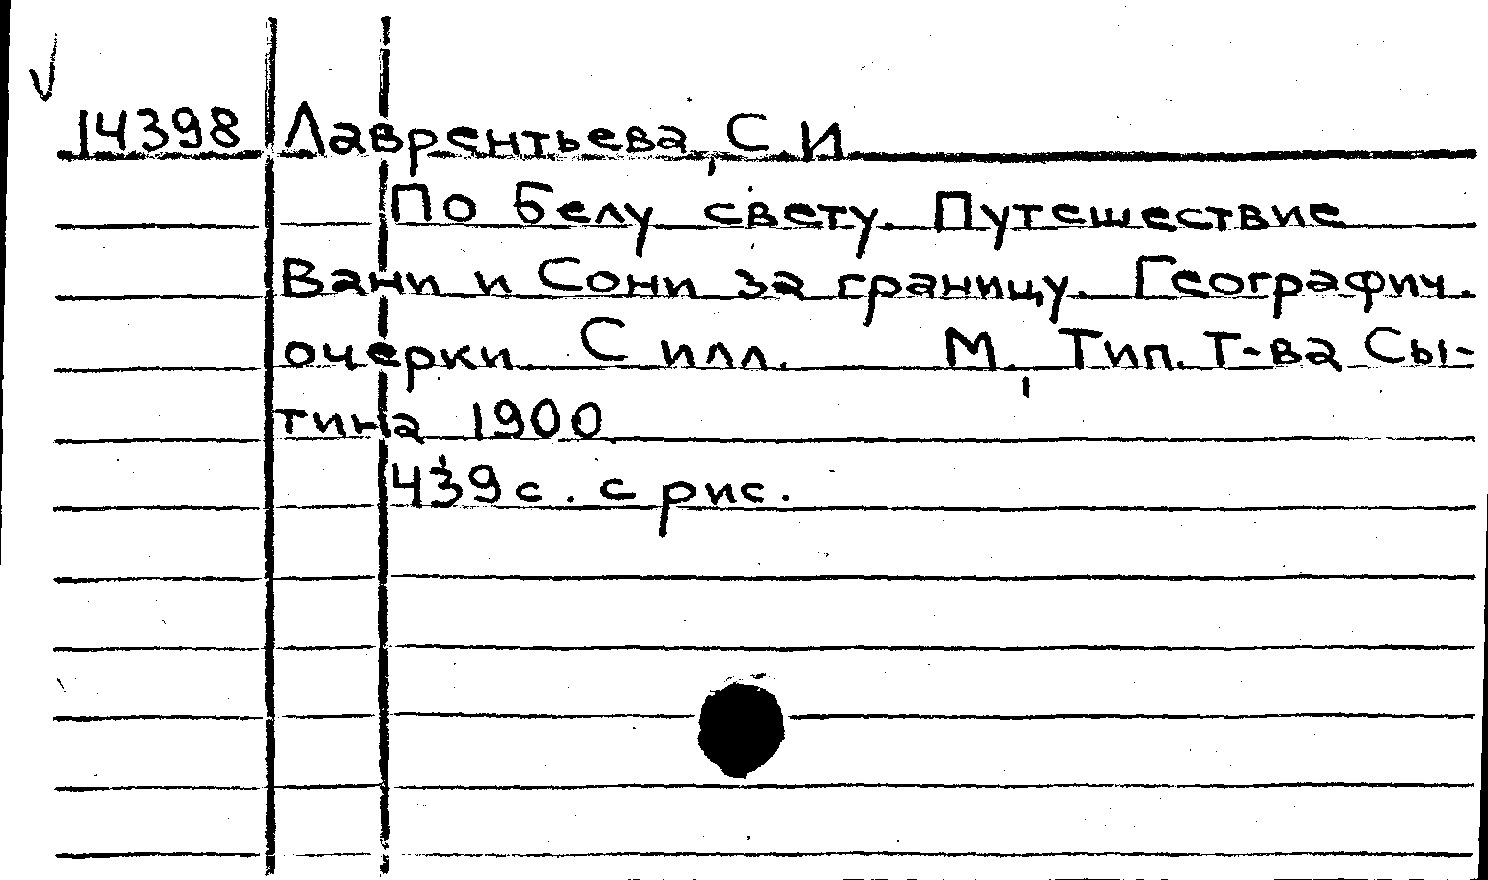 14398 Лаврентьева, С.И.
По белу свету. Путешествие
Вани и Сони за границу. Географич.
очерки. С илл. М., Тип. Т-ва Сы-
тина 1900
439 с. с рис.